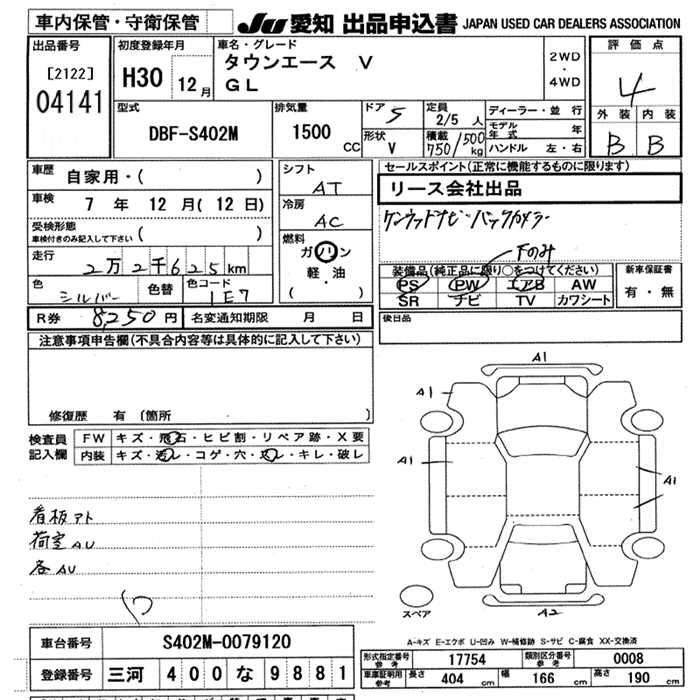 車内保管・守衛保管
JU 愛知 出品申込書 JAPAN USED CAR DEALERS ASSOCIATION
出品番号
[2122]
04141
初度登録年月
H30 12月
車名・グレード
タウンエース V
GL
2WD
・
4WD
評価点
4
外装 内装
B B
型式
DBF-S402M
排気量
1500 CC
ドア 5
形状 V
定員 2/5 人
積載 750/500 kg
ディーラー・並行
モデル年式 年
ハンドル 左・右
車歴 自家用・( )
車検 7 年 12 月 ( 12 日)
受検形態
車検付きのみ記入して下さい ( )
走行 2万2千625km
色 シルバー 色替 色コード 1E7
シフト
AT
冷房
AC
燃料
ガソリン
軽・油
( )
セールスポイント(正常に機能するものに限ります)
リース会社出品
ケンウッドナビ バックカメラー
Fのみ
装備品(純正品に限り○をつけてください)
PS PW エアB AW
SR ナビ TV カワシート
新車保証書
有・無
R券 8,250円 名変通知期限 月 日
後日品
注意事項申告欄(不具合内容等は具体的に記入して下さい)
修復歴 有 (箇所 )
検査員
記入欄
FW キズ・飛石・ヒビ割・リペア跡・X要
内装 キズ・汚レ・コゲ・穴・スレ・キレ・破レ
看板アト
荷室AU
各AU
A1
A1
A1
A1
A2
スペア
A-キズ E-エクボ U-凹み W-補修跡 S-サビ C-腐食 XX-交換済
車台番号 S402M-0079120
登録番号 三河 400 な 9881
型式指定番号
参考 17754
類別区分番号
参考 0008
車庫証明用
参考 長さ 404 cm 幅 166 cm 高さ 190 cm